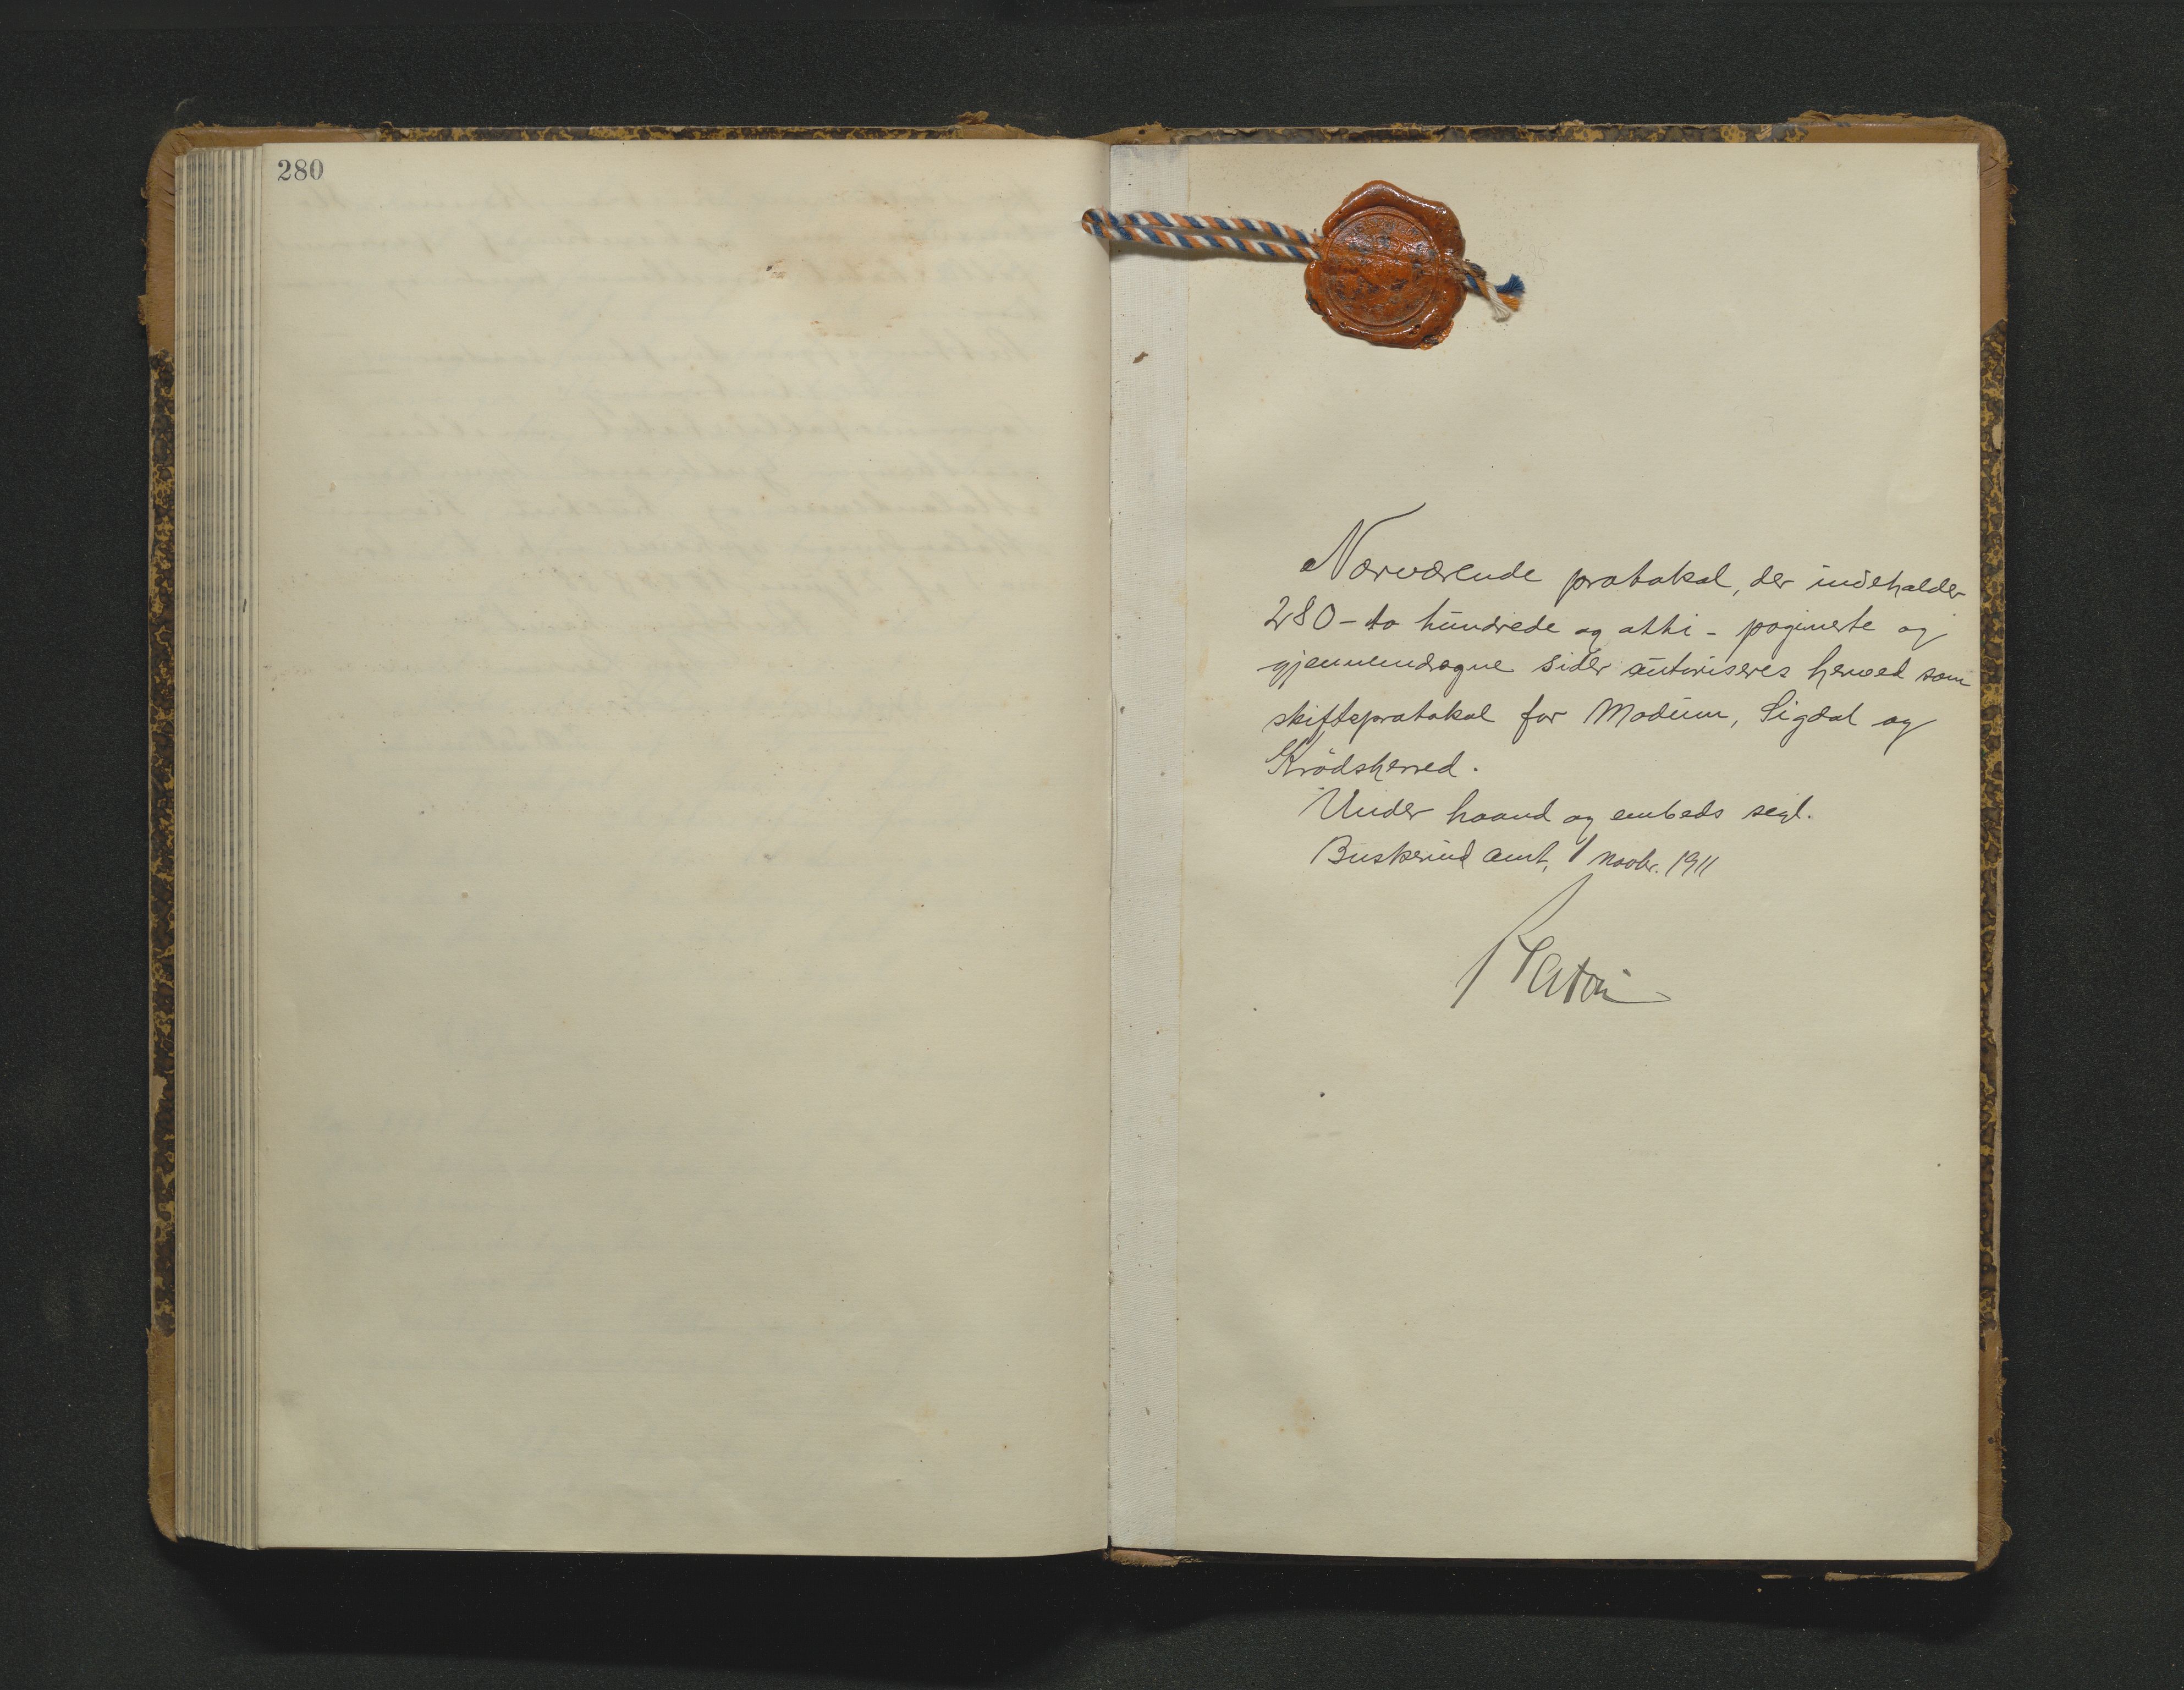 280
Nærværende protokol, der indeholder
280 - to hundrede og otti - paginerte og
gjennemdragne sider autoriseres herved som
skifteprotokol for Modum, Sigdal og
Krödsherred.
Under haand og embeds segl.
Buskerud amt, 1 novbr. 1911